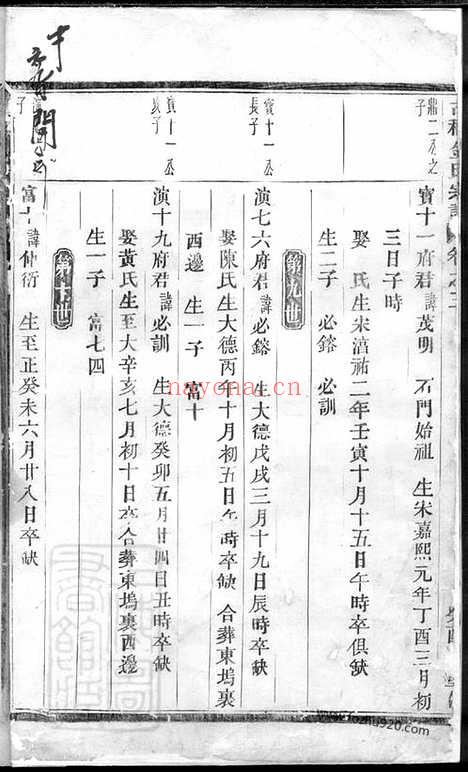 鼎二公之
子
寶十一府君諱茂明 石門始祖 生宋嘉熙元年丁酉三月初
三日子時
娶 氏生宋淳祐二年壬寅十月十五日午時卒俱缺
生二子 必鎔 必訓
第九世
寶十一公
長子
演七六府君諱必鎔 生大德戊戌三月十九日辰時卒缺
娶陳氏生大德丙午十月初五日午時卒缺 合葬東塢裏
西邊 生一子 富十
寶十一公
次子
演十九府君諱必訓 生大德癸卯五月廿四日丑時卒缺
娶黃氏生至大辛亥七月初十日卒合葬東塢裏西邊
生一子 富七四
第十世
子
富十諱仲衍 生至正癸未六月廿八日卒缺
nayona.cn
www.fozhu920.com